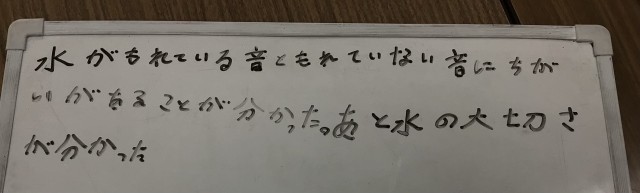 水がもれている音ともれていない音にちが
いがあることが分かった。あと水の大切さ
が分かった